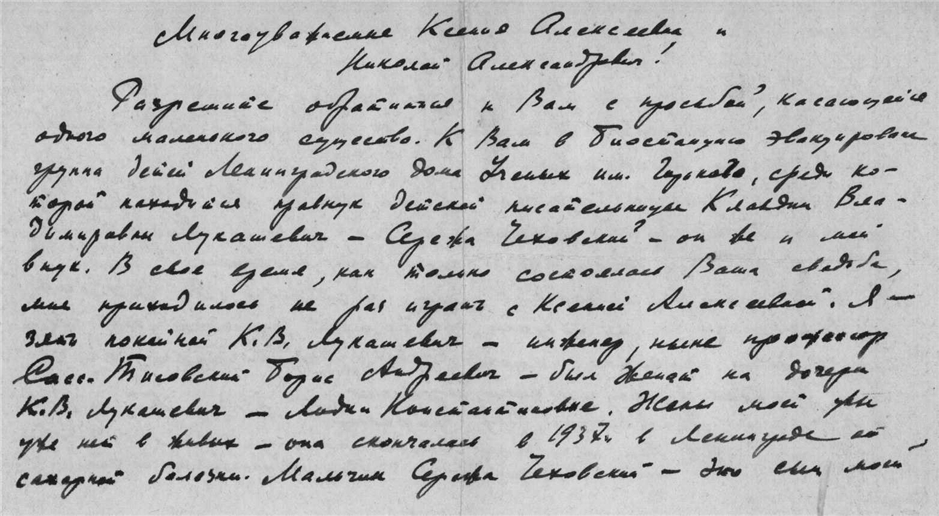 Многоуважаемые Ксения Алексеевна и
Николай Александрович!
Разрешите обратиться к Вам с просьбой, касающейся
одного маленького существа. К Вам в Биостанцию эвакуирована
группа детей Ленинградского дома Ученых им. Горького, среди ко-
торой находится правнук детской писательницы Клавдии Вла-
димировны Лукашевич – Сережа Чеховский – он же и мой
внук. В свое время, как только состоялась Ваша свадьба,
мне приходилось не раз играть с Ксенией Алексеевной. Я –
зять покойной К.В. Лукашевич – инженер, ныне профессор
Сасс-Тисовский Борис Андреевич – был женат на дочери
К.В. Лукашевич – Лидии Константиновне. Жены моей увы
уже нет в живых – она скончалась в 1937 г. в Ленинграде от
сахарной болезни. Мальчик Сережа Чеховский – это сын моей